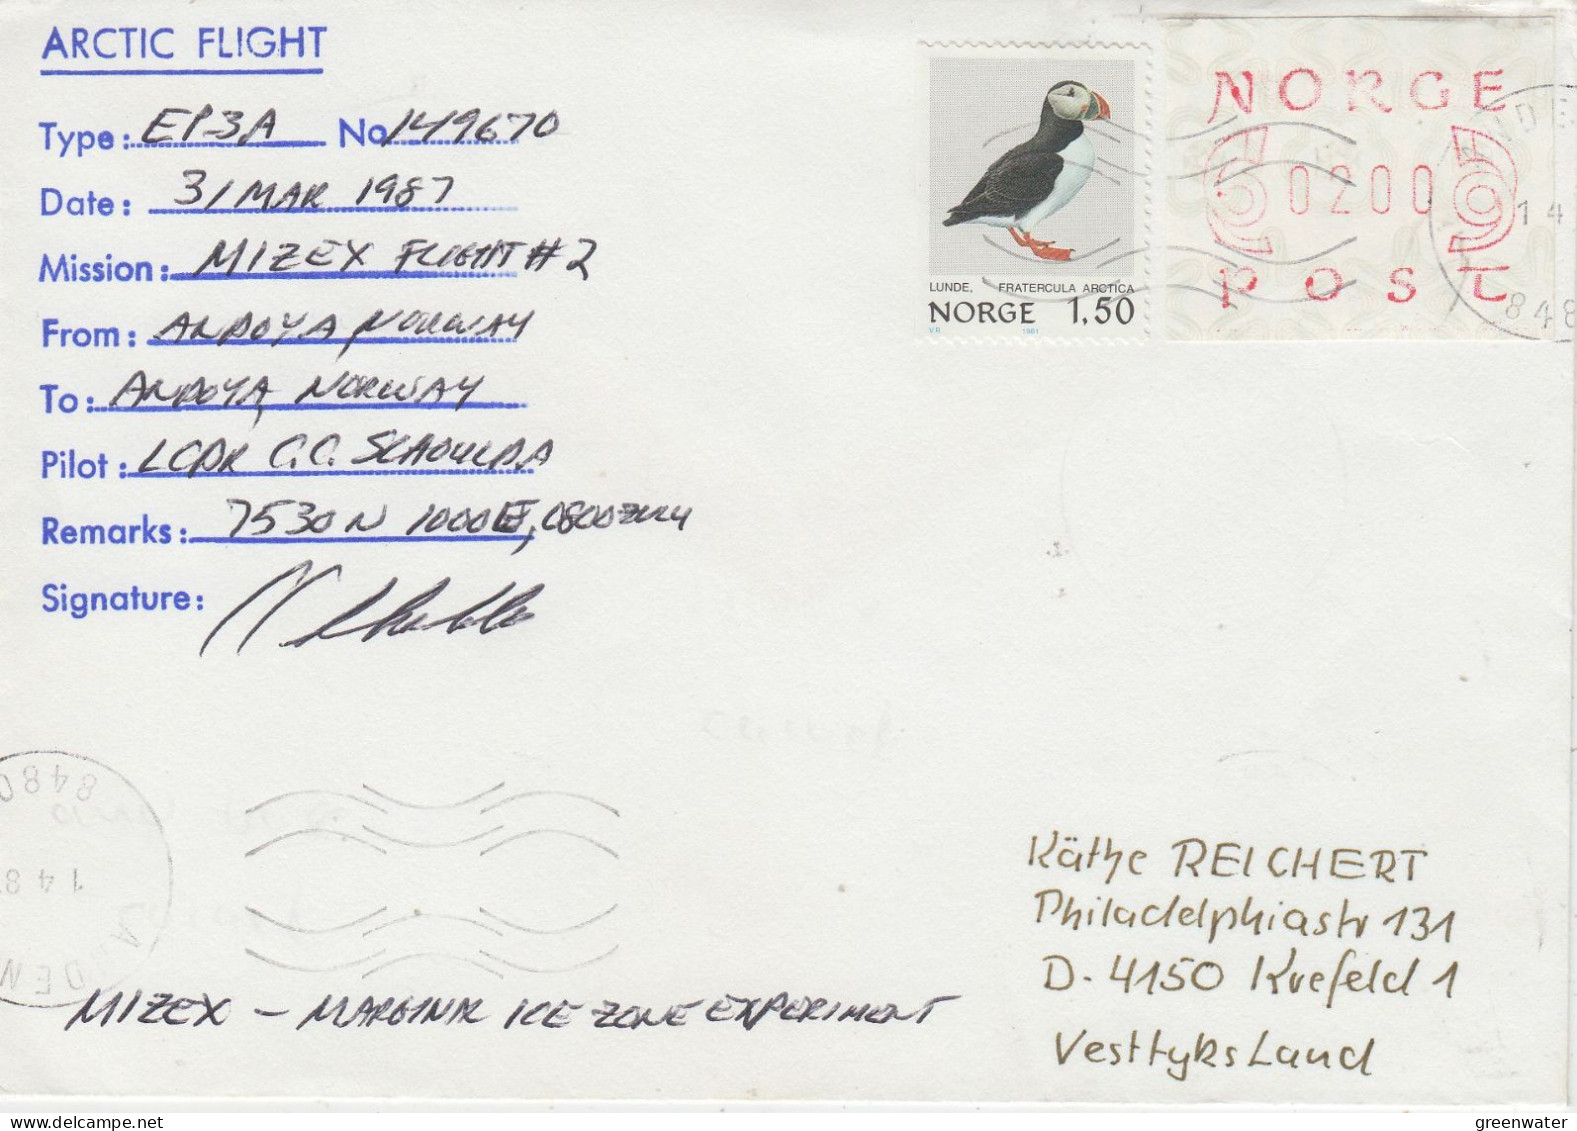 ARCTIC FLIGHT
Type: EP3A No 149670
Date: 31 MAR 1987
Mission: MIZEX FLIGHT #2
From: ANDOYA, NORWAY
To: ANDOYA, NORWAY
Pilot: LCDR C.C.
Remarks: 7530N 1000E, 0800 ZULU
Signature:
LUNDE, FRATERCULA ARCTICA
NORGE 1,50
V.R. 1981
NORGE
0200
POST
14
848
8480
14 8
Käthe REICHERT
Philadelphiastr 131
D-4150 Krefeld 1
Vesttyksland
MIZEX - MARGINAL ICE ZONE EXPERIMENT
greenwater